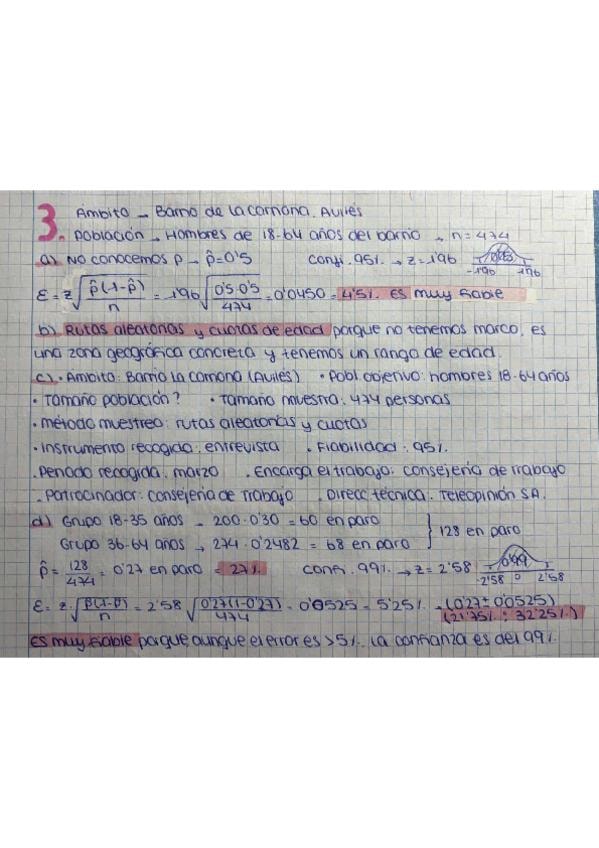 3. Ámbito → Barrio de La Carriona. Avilés
Población → Hombres de 18-64 años del barrio → n = 474
a) No conocemos p → p̂=0'5 Confi. 95% → z=1'96 0'95 -1'96 1'96
ε = z √(p̂(1-p̂)/n) = 1'96 √(0'5·0'5/474) = 0'0450 = 4'5%. Es muy fiable
b) Rutas aleatorias y cuotas de edad porque no tenemos marco, es
una zona geográfica concreta y tenemos un rango de edad.
c) · Ámbito: Barrio La Carriona (Avilés) · Pobl. objetivo: hombres 18-64 años
· Tamaño población? · Tamaño muestra: 474 personas
· Método muestreo: rutas aleatorias y cuotas
· Instrumento recogida: entrevista · Fiabilidad: 95%
· Periodo recogida: marzo · Encarga el trabajo: consejería de trabajo
· Patrocinador: consejería de Trabajo · Direcc. técnica: Teleopinión SA.
d) Grupo 18-35 años → 200·0'30 = 60 en paro
Grupo 36-64 años → 274·0'2482 = 68 en paro } 128 en paro
p̂ = 128/474 = 0'27 en paro = 27% Confi. 99% → z=2'58 0'99 -2'58 0 2'58
ε = z·√(p̂(1-p̂)/n) = 2'58 √(0'27(1-0'27)/474) = 0'0525 = 5'25% → (0'27±0'0525)
(21'75% ; 32'25%)
Es muy fiable porque, aunque el error es >5%. La confianza es del 99%